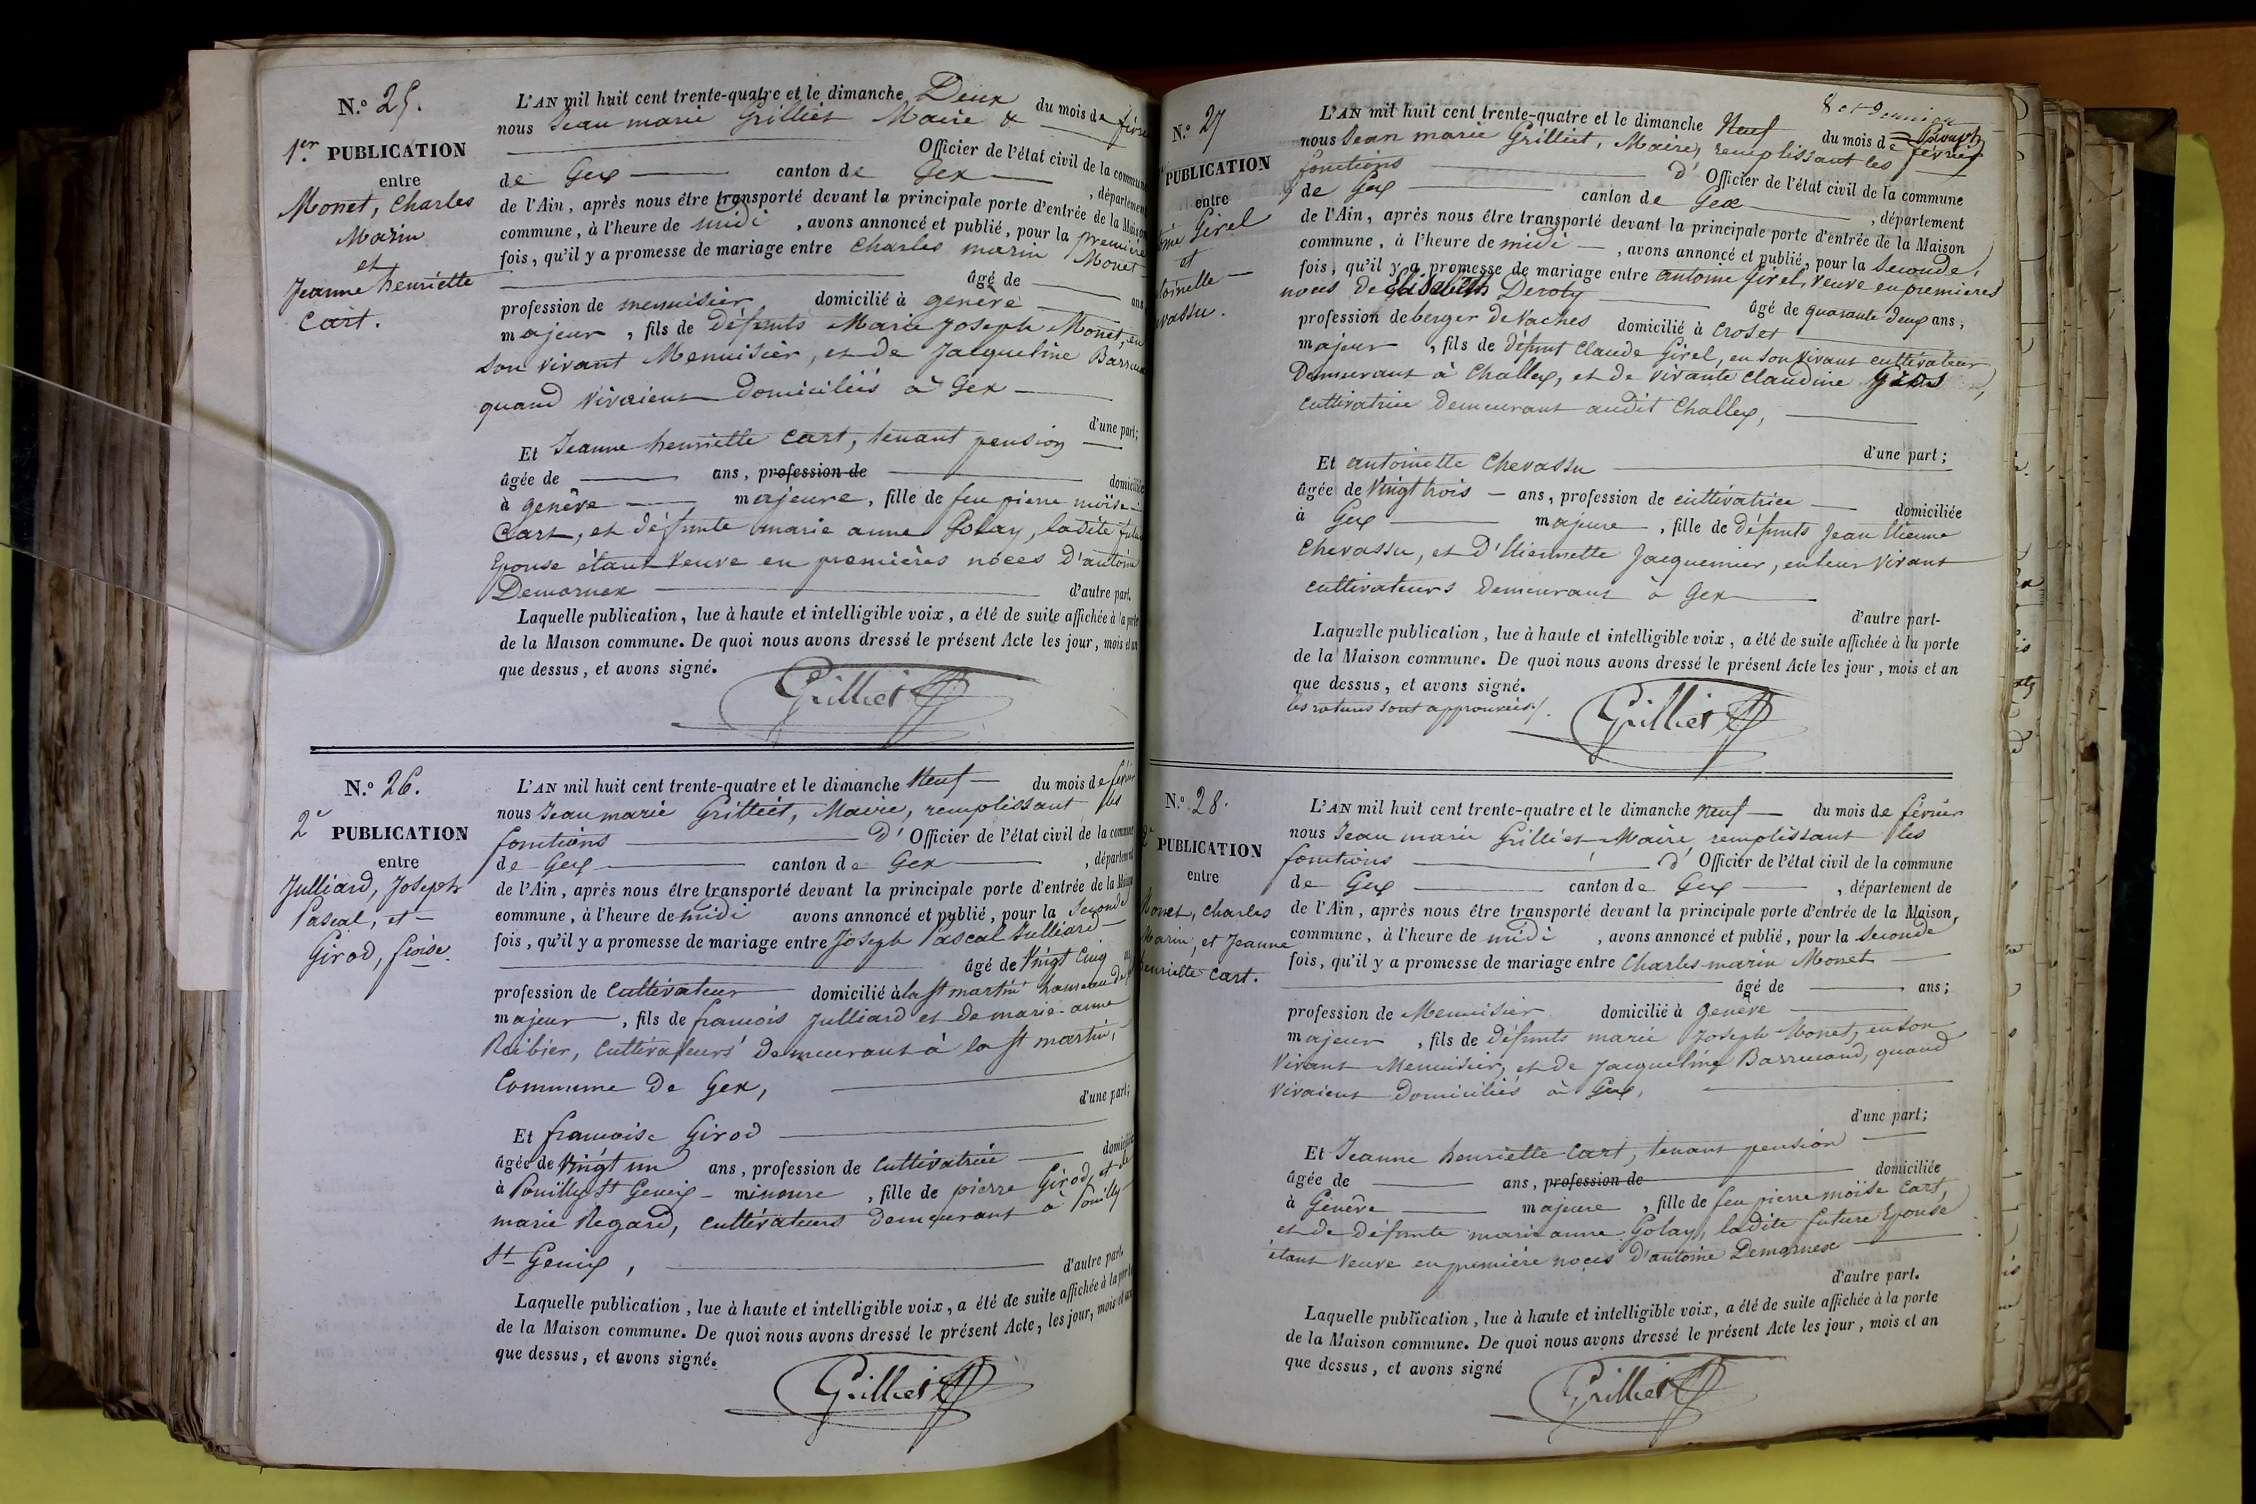 N.o 25.
1.er PUBLICATION
entre
Monet, Charles
Marin
et
Jeanne henriette
Cart.
L'AN mil huit cent trente-quatre et le dimanche Deux du mois de
nous Jean marie Grilliet Maire &
Officier de l'état civil de la commune
de Gex canton de Gex , département
de l'Ain, après nous être transporté devant la principale porte d'entrée de la Maison
commune, à l'heure de midi , avons annoncé et publié, pour la première
fois, qu'il y a promesse de mariage entre Charles marin Monet
âgé de ans
profession de menuisier, domicilié à genève
majeur , fils de Défunts Marie Joseph Monet, en
son vivant Menuisier, et de Jacqueline
quand vivaient domiciliés à Gex
d'une part;
Et Jeanne henriette Cart, tenant pension
âgée de ans, profession de domiciliée
à genêve majeure, fille de feu pierre moïse
Cart, et défunte marie anne Golay, ladite
Epouse étant Veuve en premières noces D'antoine
Demornex d'autre part.
Laquelle publication, lue à haute et intelligible voix, a été de suite affichée à la porte
de la Maison commune. De quoi nous avons dressé le présent Acte les jour, mois et an
que dessus, et avons signé.
Grilliet
N.o 26.
2e PUBLICATION
entre
Julliard, Joseph
Pascal, et
Girod, froise.
L'AN mil huit cent trente-quatre et le dimanche Neuf du mois de
nous Jean marie Grilliet, Maire, remplissant les
fonctions d' Officier de l'état civil de la commune
de Gex canton de Gex , département
de l'Ain, après nous être transporté devant la principale porte d'entrée de la Maison
commune, à l'heure de midi avons annoncé et publié, pour la Seconde
fois, qu'il y a promesse de mariage entre Joseph Pascal Julliard
âgé de Vingt Cinq
profession de Cultivateur domicilié à la St martin hameau de
majeur , fils de francois Julliard et de marie-anne
Reibier, Cultivateurs demeurant à la St martin,
Commune de Gex,
d'une part;
Et francoise Girod
âgée de Vingt un ans, profession de Cultivatrice
à Pouilly St Genix - mineure , fille de pierre Girod, et de
marie Regard, cultivateurs demeurant à Pouilly
St Genix,
d'autre part.
Laquelle publication, lue à haute et intelligible voix, a été de suite affichée à la porte
de la Maison commune. De quoi nous avons dressé le présent Acte, les jour, mois et an
que dessus, et avons signé.
Grilliet
N.o 27
PUBLICATION
entre
Girel
et
L'AN mil huit cent trente-quatre et le dimanche Neuf du mois de février
nous Jean marie Grilliet, Maire, remplissant les
fonctions d' Officier de l'état civil de la commune
de Gex canton de Gex , département
de l'Ain, après nous être transporté devant la principale porte d'entrée de la Maison
commune, à l'heure de midi , avons annoncé et publié, pour la Seconde,
fois, qu'il y a promesse de mariage entre antoine Girel, Veuve en premieres
noces de Elisabeth Deroty âgé de quarante deux ans,
profession de berger de vaches domicilié à Croset
majeur , fils de défunt Claude Girel, en son vivant cultivateur
Demeurant à Challex, et de vivante Claudine
Cultivatrice demeurant audit Challex,
d'une part;
Et antoinette Chevassu
âgée de Vingt trois - ans, profession de cultivatrice domiciliée
à Gex majeure , fille de défunts Jean Etienne
Chevassu, et d'Etiennette Jacquemier, en leur vivant
cultivateurs demeurant à Gex
d'autre part-
Laquelle publication, lue à haute et intelligible voix, a été de suite affichée à la porte
de la Maison commune. De quoi nous avons dressé le présent Acte les jour, mois et an
que dessus, et avons signé.
les ratures sont approuvées ./.
Grilliet
N.o 28.
PUBLICATION
entre
Monet, Charles
Marin, et Jeanne
henriette Cart.
L'AN mil huit cent trente-quatre et le dimanche Neuf du mois de février
nous Jean marie Grilliet Maire remplissant les
fonctions d' Officier de l'état civil de la commune
de Gex canton de Gex , département de
de l'Ain, après nous être transporté devant la principale porte d'entrée de la Maison,
commune, à l'heure de midi , avons annoncé et publié, pour la Seconde
fois, qu'il y a promesse de mariage entre Charles marin Monet
âgé de ans;
profession de Menuisier domicilié à genève
majeur , fils de Défunts marie Joseph Monet, en son
Vivant Menuisier, et de Jacqueline Barrucand, quand
Vivaient Domiciliés à Gex,
d'une part;
Et Jeanne henriette Cart, tenant pension
âgée de ans, profession de domiciliée
à Genève majeure , fille de feu pierre moïse Cart,
et de défunte marie anne Golay, ladite future Epouse
étant Veuve en première noces d'antoine Demornex
d'autre part.
Laquelle publication, lue à haute et intelligible voix, a été de suite affichée à la porte
de la Maison commune. De quoi nous avons dressé le présent Acte les jour, mois et an
que dessus, et avons signé
Grilliet